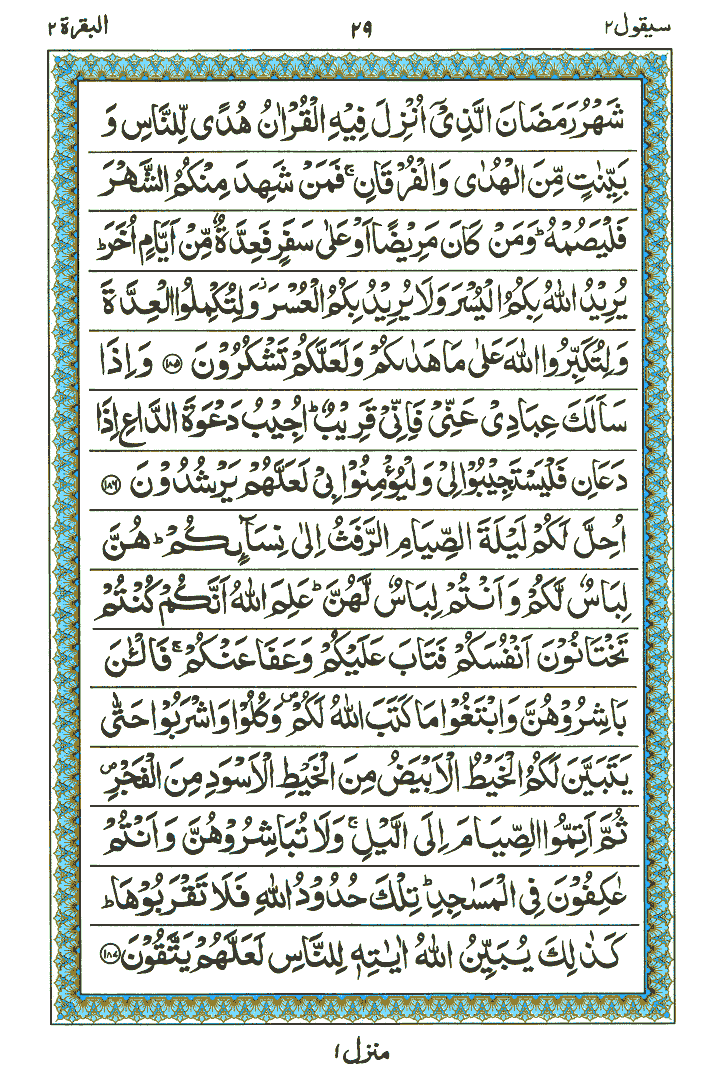 سیقول ٢ ٢٩ البقرة ٢
شَهْرُ رَمَضَانَ الَّذِیْۤ اُنْزِلَ فِیْهِ الْقُرْاٰنُ هُدًی لِّلنَّاسِ وَ
بَیِّنٰتٍ مِّنَ الْهُدٰی وَالْفُرْقَانِ ۚ فَمَنْ شَهِدَ مِنْكُمُ الشَّهْرَ
فَلْیَصُمْهُ ؕ وَمَنْ كَانَ مَرِیْضًا اَوْ عَلٰی سَفَرٍ فَعِدَّةٌ مِّنْ اَیَّامٍ اُخَرَ ؕ
یُرِیْدُ اللّٰهُ بِكُمُ الْیُسْرَ وَلَا یُرِیْدُ بِكُمُ الْعُسْرَ ۫ وَلِتُكْمِلُوا الْعِدَّةَ
وَلِتُكَبِّرُوا اللّٰهَ عَلٰی مَا هَدٰىكُمْ وَلَعَلَّكُمْ تَشْكُرُوْنَ ﴿١٨٥﴾ وَاِذَا
سَاَلَكَ عِبَادِیْ عَنِّیْ فَاِنِّیْ قَرِیْبٌ ؕ اُجِیْبُ دَعْوَةَ الدَّاعِ اِذَا
دَعَانِ فَلْیَسْتَجِیْبُوْا لِیْ وَلْیُؤْمِنُوْا بِیْ لَعَلَّهُمْ یَرْشُدُوْنَ ﴿١٨٦﴾
اُحِلَّ لَكُمْ لَیْلَةَ الصِّیَامِ الرَّفَثُ اِلٰی نِسَآىِٕكُمْ ؕ هُنَّ
لِبَاسٌ لَّكُمْ وَاَنْتُمْ لِبَاسٌ لَّهُنَّ ؕ عَلِمَ اللّٰهُ اَنَّكُمْ كُنْتُمْ
تَخْتَانُوْنَ اَنْفُسَكُمْ فَتَابَ عَلَیْكُمْ وَعَفَا عَنْكُمْ ۚ فَالْـٰٔنَ
بَاشِرُوْهُنَّ وَابْتَغُوْا مَا كَتَبَ اللّٰهُ لَكُمْ ۪ وَكُلُوْا وَاشْرَبُوْا حَتّٰی
یَتَبَیَّنَ لَكُمُ الْخَیْطُ الْاَبْیَضُ مِنَ الْخَیْطِ الْاَسْوَدِ مِنَ الْفَجْرِ ۪
ثُمَّ اَتِمُّوا الصِّیَامَ اِلَی الَّیْلِ ۚ وَلَا تُبَاشِرُوْهُنَّ وَاَنْتُمْ
عٰكِفُوْنَ فِی الْمَسٰجِدِ ؕ تِلْكَ حُدُوْدُ اللّٰهِ فَلَا تَقْرَبُوْهَا ؕ
كَذٰلِكَ یُبَیِّنُ اللّٰهُ اٰیٰتِهٖ لِلنَّاسِ لَعَلَّهُمْ یَتَّقُوْنَ ﴿١٨٧﴾
منزل ١